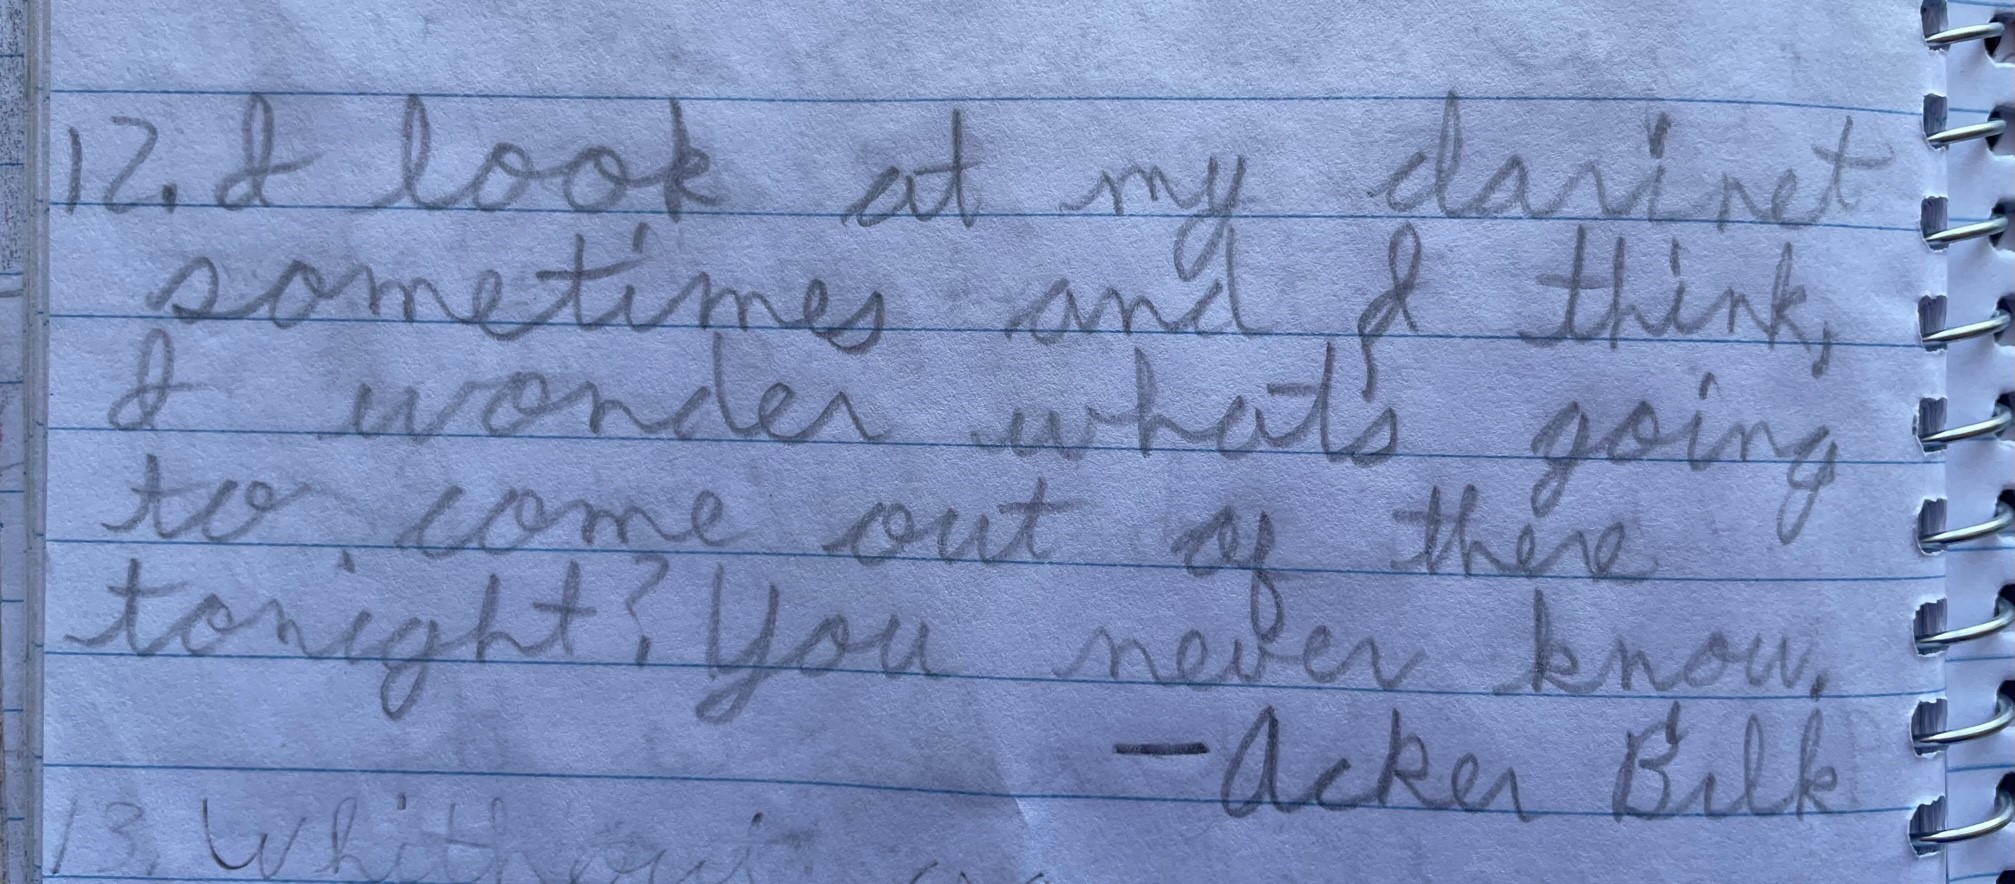 12. I look at my clarinet
sometimes and I think,
I wonder what's going
to come out of there
tonight? You never know.
—Acker Bilk
13. Whithout